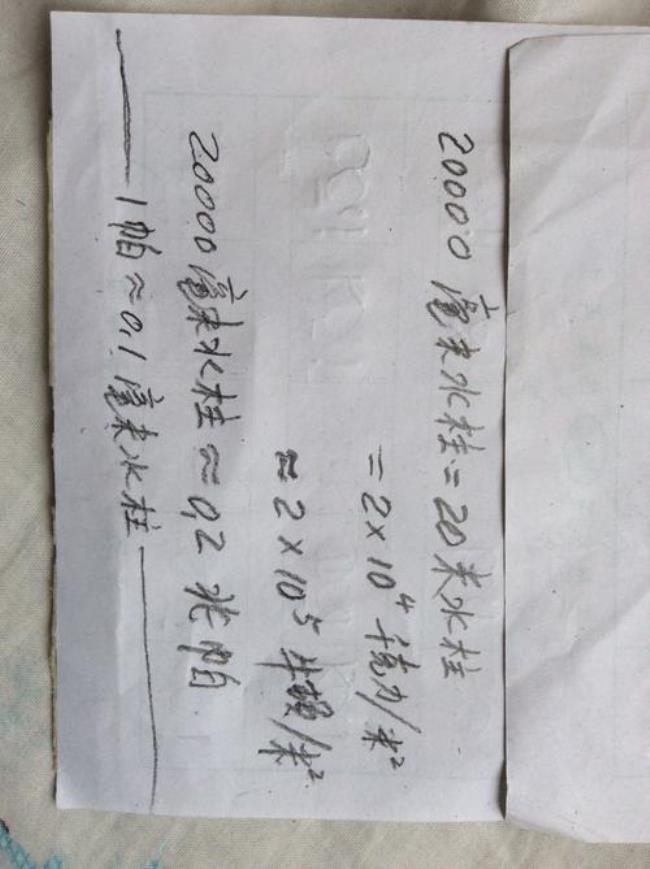 20000毫米水柱=20米水柱
=2×10⁴千克力/米²
≈2×10⁵牛顿/米²
20000毫米水柱≈0.2兆帕
1帕≈0.1毫米水柱